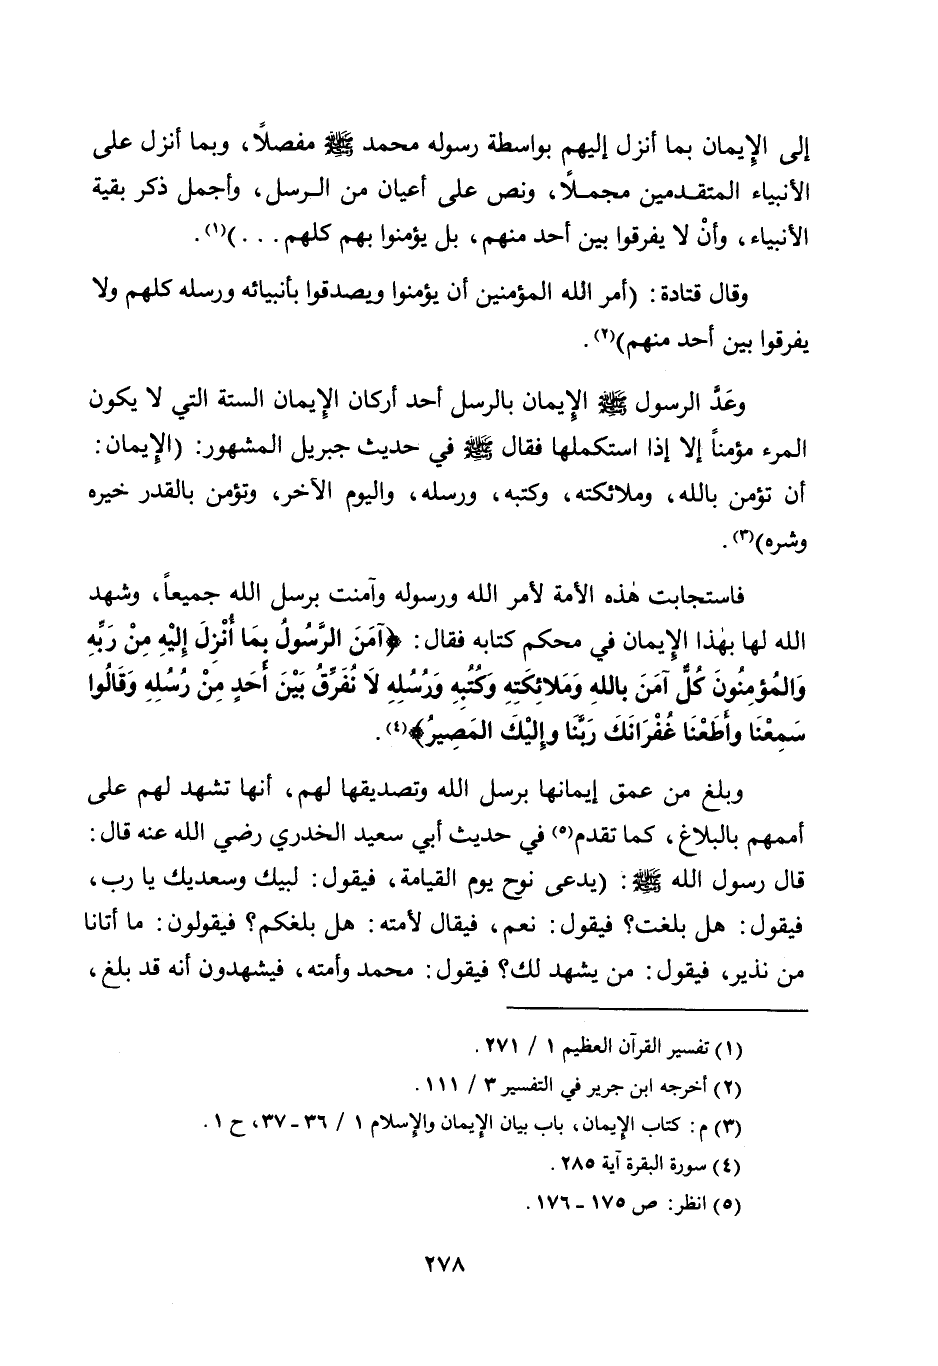 إلى الإيمان بما أنزل إليهم بواسطة رسوله محمد ﷺ مفصلاً، وبما أنزل على
الأنبياء المتقدمين مجملاً، ونص على أعيان من الرسل، وأجمل ذكر بقية
الأنبياء، وأنْ لا يفرقوا بين أحد منهم، بل يؤمنوا بهم كلهم...)(١).
وقال قتادة: (أمر الله المؤمنين أن يؤمنوا ويصدقوا بأنبيائه ورسله كلهم ولا
يفرقوا بين أحد منهم)(٢).
وعَدَّ الرسول ﷺ الإيمان بالرسل أحد أركان الإيمان الستة التي لا يكون
المرء مؤمناً إلا إذا استكملها فقال ﷺ في حديث جبريل المشهور: (الإيمان:
أن تؤمن بالله، وملائكته، وكتبه، ورسله، واليوم الآخر، وتؤمن بالقدر خيره
وشره)(٣).
فاستجابت هٰذه الأمة لأمر الله ورسوله وآمنت برسل الله جميعاً، وشهد
الله لها بهٰذا الإيمان في محكم كتابه فقال: ﴿آمَنَ الرَّسُولُ بِمَا أُنْزِلَ إِلَيْهِ مِنْ رَبِّهِ
وَالمُؤمِنُونَ كُلٌّ آمَنَ بالله وَمَلائِكَتِهِ وَكُتُبِهِ وَرُسُلِهِ لَا نُفَرِّقُ بَيْنَ أَحَدٍ مِنْ رُسُلِهِ وَقَالُوا
سَمِعْنَا وأَطَعْنَا غُفْرَانَكَ رَبَّنَا وإِلَيْكَ المَصِيرُ﴾(٤).
وبلغ من عمق إيمانها برسل الله وتصديقها لهم، أنها تشهد لهم على
أممهم بالبلاغ، كما تقدم(٥) في حديث أبي سعيد الخدري رضي الله عنه قال:
قال رسول الله ﷺ: (يدعى نوح يوم القيامة، فيقول: لبيك وسعديك يا رب،
فيقول: هل بلغت؟ فيقول: نعم، فيقال لأمته: هل بلغكم؟ فيقولون: ما أتانا
من نذير، فيقول: من يشهد لك؟ فيقول: محمد وأمته، فيشهدون أنه قد بلغ،
(١) تفسير القرآن العظيم ١ / ٢٧١.
(٢) أخرجه ابن جرير في التفسير ٣ / ١١١.
(٣) م: كتاب الإيمان، باب بيان الإيمان والإسلام ١ / ٣٦ - ٣٧، ح ١.
(٤) سورة البقرة آية ٢٨٥.
(٥) انظر: ص ١٧٥ - ١٧٦.
٢٧٨